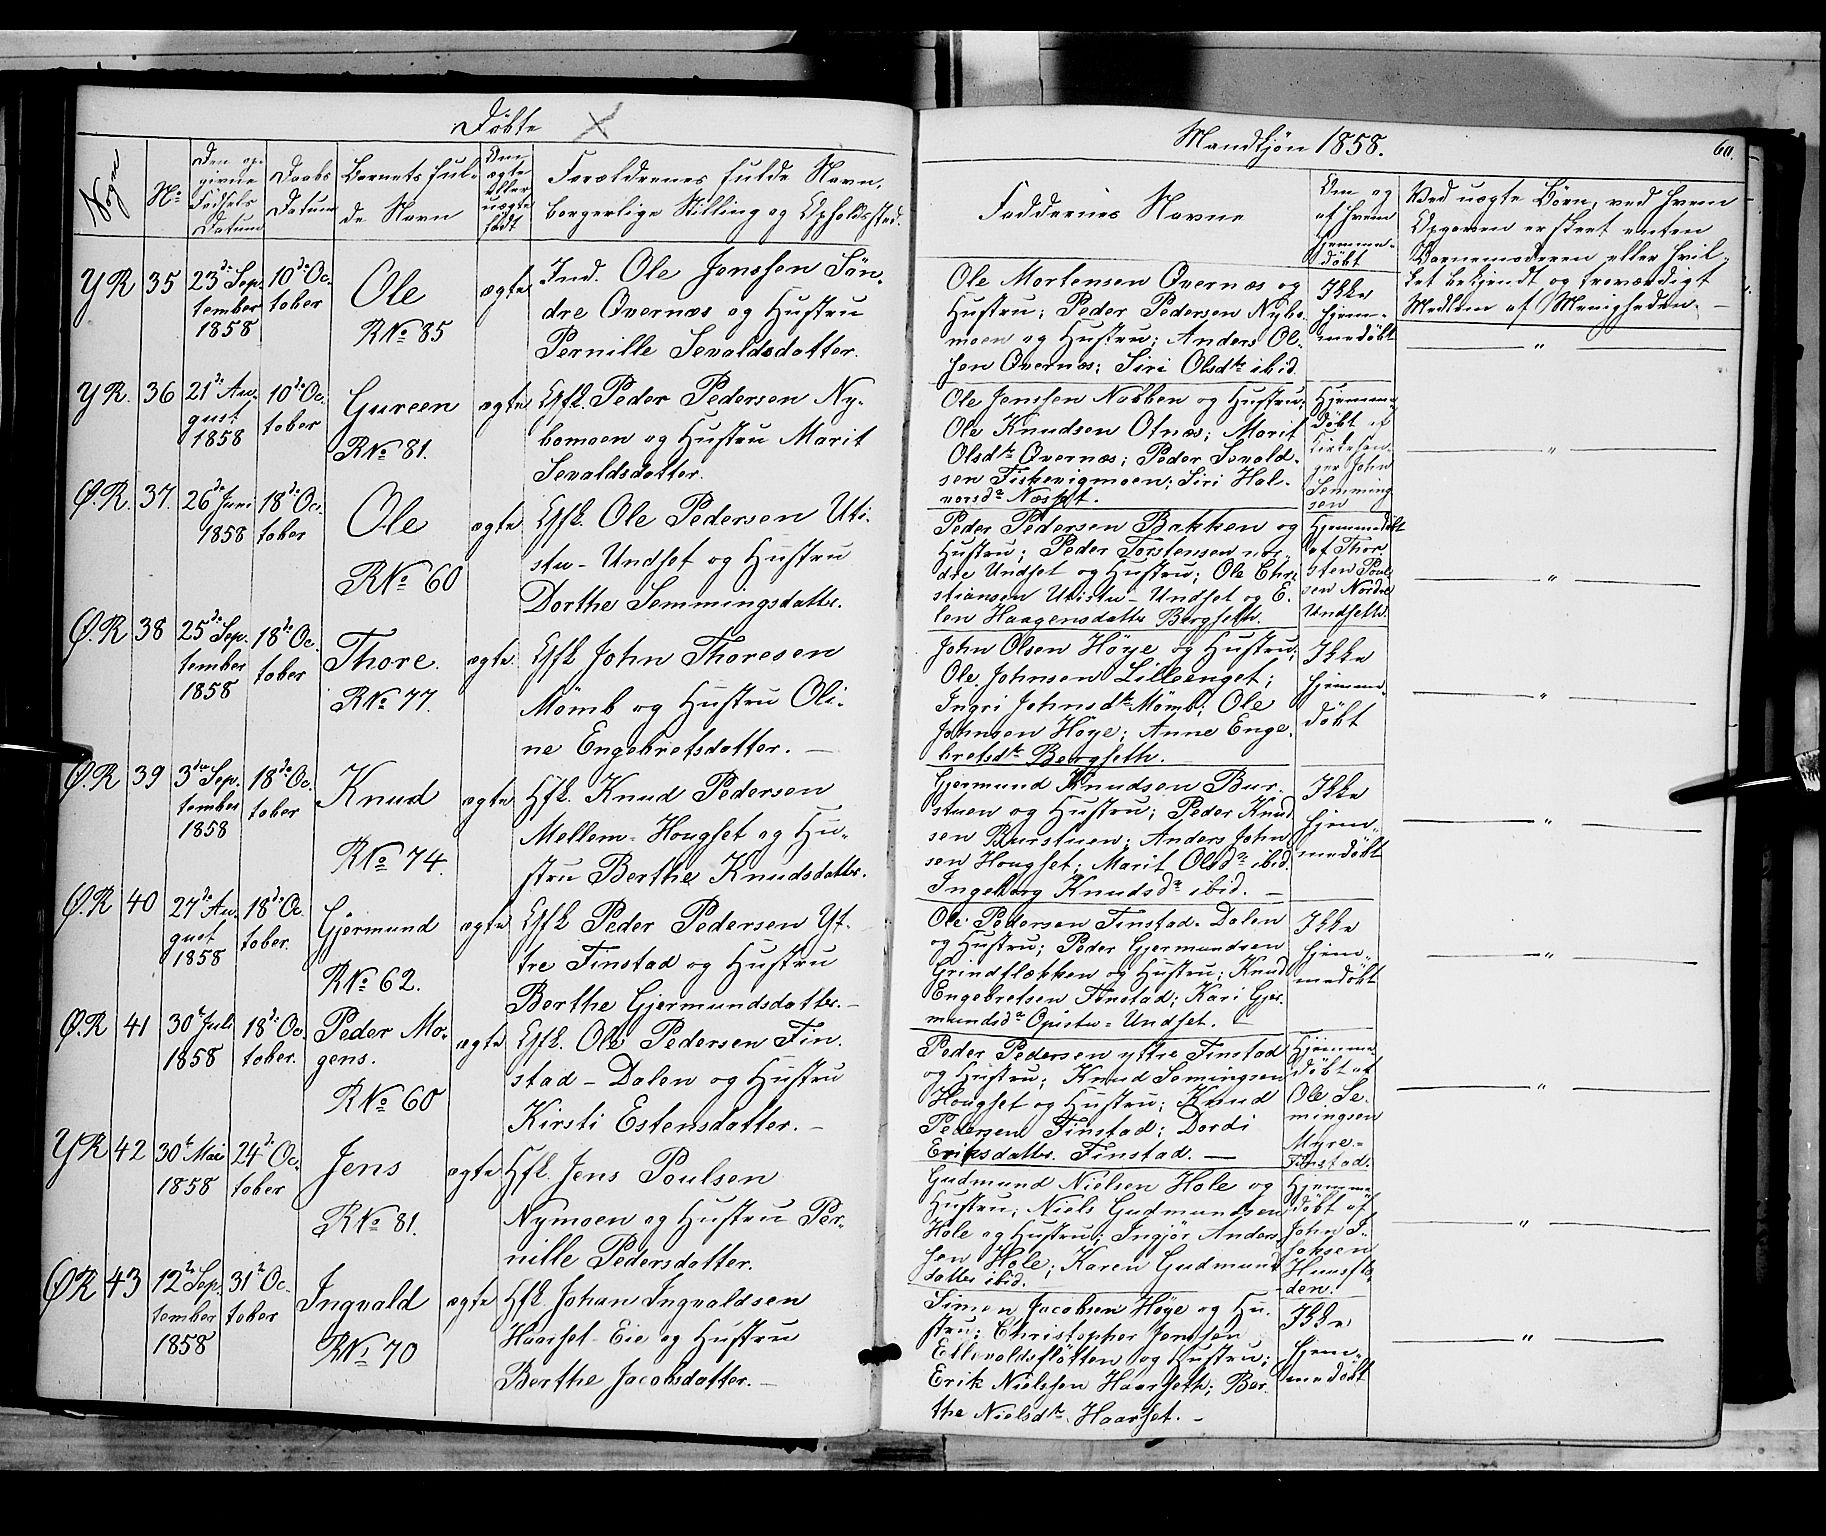 Døbte
Mandkjøn 1858.
60.
Sogn
No
Den op-
givne
Fødsels
Datum
Daabs
Datum
Barnets ful-
de Navn
Om
ægte
eller
uægte
født
Forældrenes fulde Navn,
borgerlige Stilling og Opholdssted.
Faddernes Navne
Om og
af hvem
hjemme-
døbt
Ved uægte Børn, ved hvem
Opgaven er skeet enten
Barnemoderen eller hvil-
ket bekjendt og troværdigt
Medlem af Menigheden.
Y R 35 23de Sep-
tember
1858
10de Oc-
tober
Ole
R No 85
ægte
Ind. Ole Jonssen Søn-
dre Øvernæs og Hustru
Pernille Sevaldsdatter.
Ole Mortensen Øvernæs og
Hustru; Peder Pedersen Nybo-
moen og Hustru; Anders Ol-
sen Øvernæs; Siri Olsdtr ibid.
Ikke
hjem-
medøbt
— " —
Y R. 36 21de Au-
gust
1858
10de Oc-
tober
Gureen
R No 81.
ægte
Gfk. Peder Pedersen Ny-
bomoen og Hustru Marit
Sevaldsdatter.
Ole Jonssen Nabben og Hustru;
Ole Knudsen Otnæs; Marit
Olsdtr Øvernæs; Peder Sevald-
sen Fiskevigmoen; Siri Hal-
vorsdr Næsset.
Hjemme-
døbt af
Kirkesan-
ger John
Semming-
sen
— " —
Ø.R. 37. 26de Juni
1858
18de Oc-
tober
Ole
R No 60
ægte
Gfk. Ole Pedersen Uti-
stu-Undset og Hustru
Dorthe Semmingsdatter.
Peder Pedersen Bakken og
Hustru; Peder Torstensen nor-
dre Undset og Hustru; Ole Chri-
stiansen Utistu-Undset og E-
len Haagensdatter Bergseth.
Hjemmedøbt
af Thor-
sten Poul-
sen Nordre
Undseth.
— " —
Ø.R 38 25de Sep-
tember
1858
18de Oc-
tober
Thore.
R No 77.
ægte
Gfk John Thoresen
Mømb og Hustru Oli-
ne Engebretsdatter. —
John Olsen Høye og Hustru;
Ole Johnsen Lilleenget;
Ingri Johnsdtr Mømb; Ole
Johnsen Høye; Anne Enge-
bretsdtr Bergseth.
Ikke
hjemme-
døbt
— " —
Ø.R 39 3die Sep-
tember
1858
18de Oc-
tober
Knud
R No 74.
ægte
Hfk. Knud Pedersen
Mellem-Hougset og Hu-
stru Berthe Knudsdatter.
Gjermund Knudsen Bur-
stuen og Hustru; Peder Knud-
sen Burstuen; Anders John-
sen Hougset; Marit Olsdr ibid.
Ingeborg Knudsdr ibid. —
Ikke
hjem-
medøbt
— " —
Ø.R 40 27de Au-
gust
1858
18de Oc-
tober.
Gjermund
R No 62.
ægte
Gfk Peder Pedersen Yt-
tre Finstad og Hustru
Berthe Gjermundsdatter. —
Ole Pedersen Finstad-Dalen
og Hustru; Peder Gjermundsen
Grindflækken og Hustru; Knud
Engebretsen Finstad; Kari Gjer-
mundsdr Opistu-Undset. —
Ikke
hjem-
medøbt
— " —
Ø.R 41 30te Juli
1858
18de Oc-
tober.
Peder Mo-
gens.
R No 60
ægte
Gfk. Ole Pedersen Fin-
stad-Dalen og Hustru
Kirsti Estensdatter. —
Peder Pedersen yttre Finstad
og Hustru; Knud Semingsen
Hougset og Hustru; Knud
Pedersen Finstad; Dordi
Eriksdatter Finstad. —
Hjemme-
døbt af
Ole Se-
mingsen
Myre-
Finstad.
— " —
Y R 42 30te Mai
1858
24de Oc-
tober
Jens
R No 81.
ægte
Hfk. Jens Poulsen
Nymoen og Hustru Per-
nille Pedersdatter.
Gudmund Nielsen Hole og
Hustru; Niels Gudmundsen
Hole og Hustru; Ingjør Anders-
sen Hole; Karen Gudmund-
datter ibid.
Hjemme-
døbt af
John I-
saksen
Hanestø-
den.
— " —
Ø R 43 12te Sep-
tember
1858
31te Oc-
tober
Ingvald
R No 70
ægte
Hfk. Johan Ingvaldsen
Haarset-Eie og Hustru
Berthe Jacobsdatter. —
Simen Jacobsen Høye og Hu-
stru; Christopher Jonssen
Ellevoldsfløtten og Hustru;
Erik Nielssen Haarseth; Ber-
the Nielsdtr. Haarset. —
Ikke
hjem-
medøbt
— " —